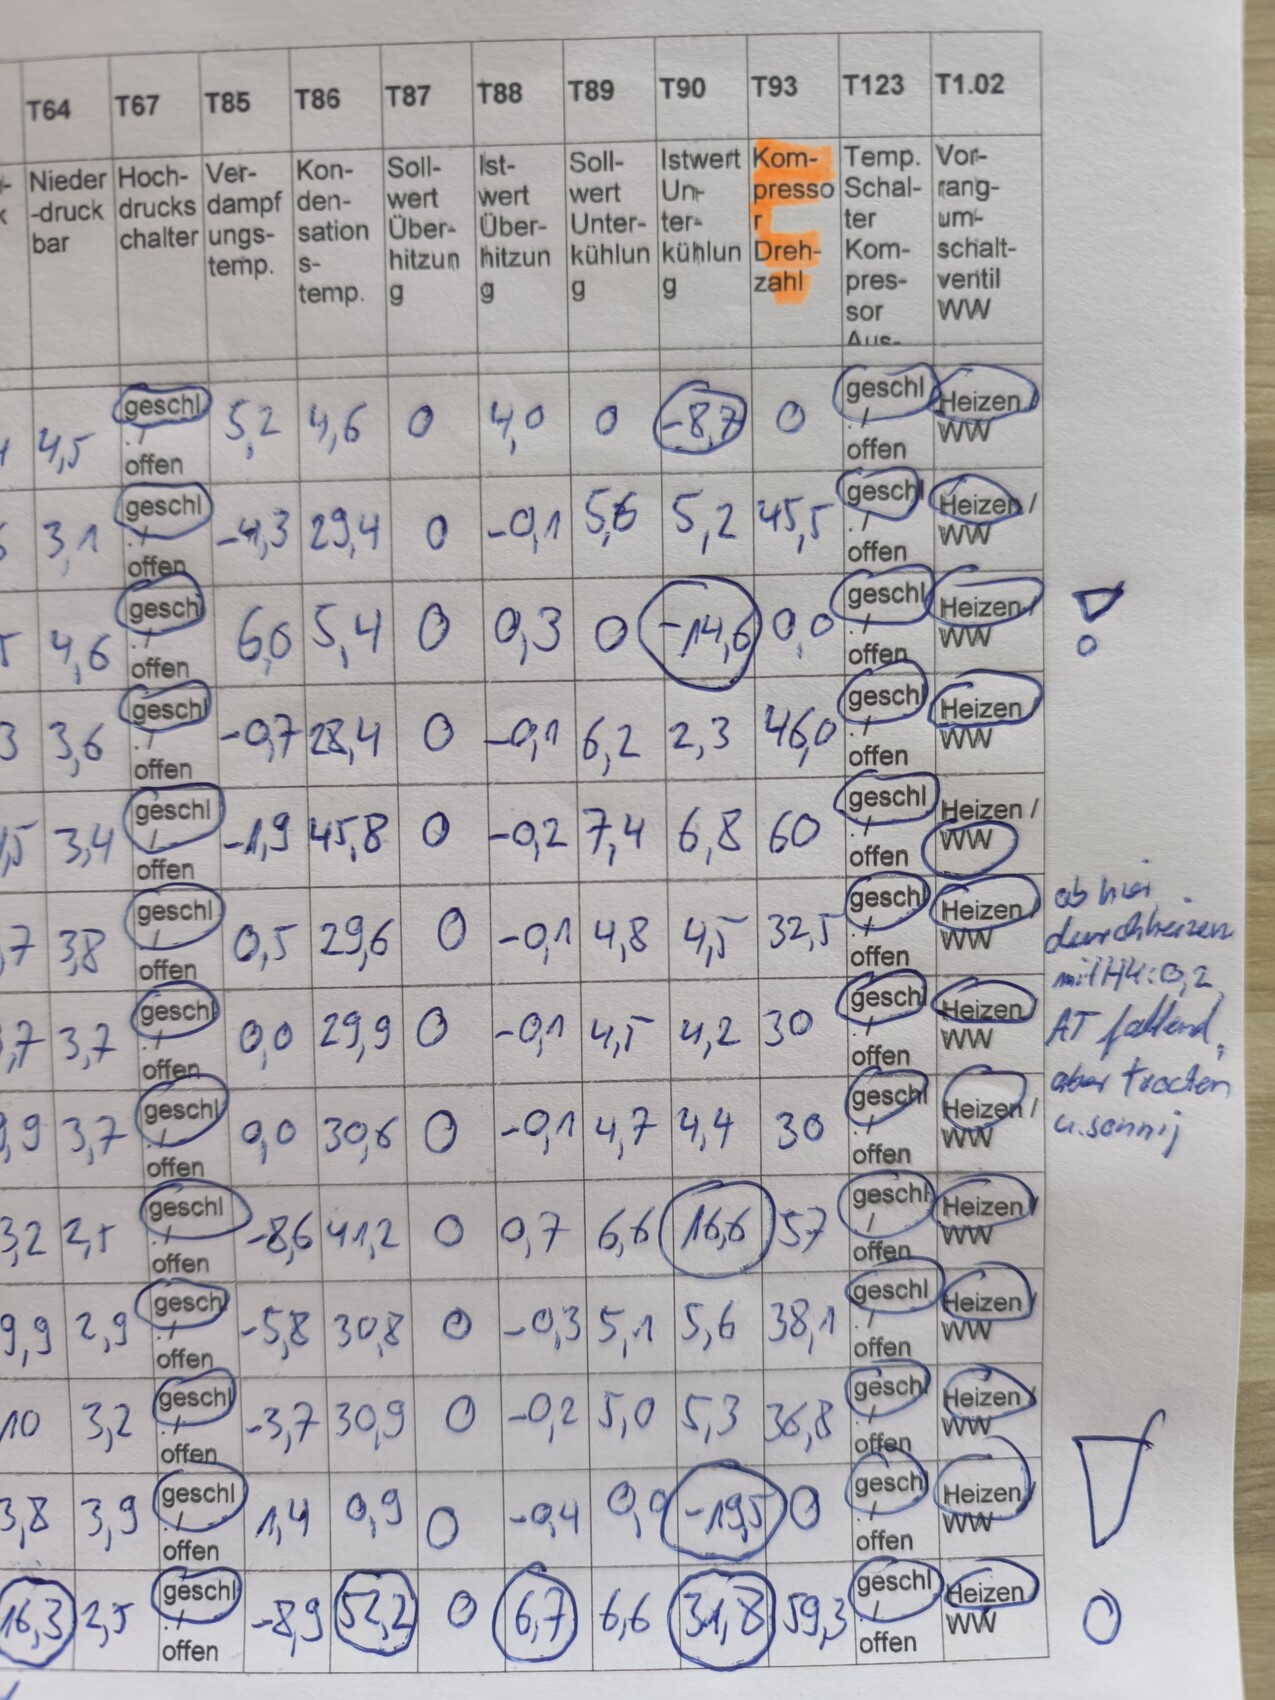 T64 T67 T85 T86 T87 T88 T89 T90 T93 T123 T1.02
Nieder
-druck
bar
Hoch-
drucks
chalter
Ver-
dampf
ungs-
temp.
Kon-
den-
sation
s-
temp.
Soll-
wert
Über-
hitzun
g
Ist-
wert
Über-
hitzun
g
Soll-
wert
Unter-
kühlun
g
Istwert
Un-
ter-
kühlun
g
Kom-
presso
r
Dreh-
zahl
Temp.
Schal-
ter
Kom-
pres-
sor
Aus-
Vor-
rang-
um-
schalt-
ventil
WW
4,5 geschl./offen 5,2 4,6 0 4,0 0 -8,7 0 geschl./offen Heizen/WW
3,1 geschl./offen -4,3 29,4 0 -0,1 5,6 5,2 45,5 geschl./offen Heizen / WW
4,6 geschl./offen 6,0 5,4 0 0,3 0 -14,6 0,0 geschl./offen Heizen / WW
3 3,6 geschl./offen -0,7 28,4 0 -0,1 6,2 2,3 46,0 geschl./offen Heizen WW
,5 3,4 geschl/offen -1,9 45,8 0 -0,2 7,4 6,8 60 geschl./offen Heizen / WW
,7 3,8 geschl/offen 0,5 29,6 0 -0,1 4,8 4,5 32,5 geschl./offen Heizen / WW
,7 3,7 geschl./offen 0,0 29,9 0 -0,1 4,5 4,2 30 geschl./offen Heizen WW
9,9 3,7 geschl./offen 0,0 30,6 0 -0,1 4,7 4,4 30 geschl./offen Heizen / WW
3,2 2,5 geschl./offen -8,6 41,2 0 0,7 6,6 16,6 57 geschl/offen Heizen / WW
9,9 2,9 geschl./offen -5,8 30,8 0 -0,3 5,1 5,6 38,1 geschl./offen Heizen / WW
10 3,2 geschl./offen -3,7 30,9 0 -0,2 5,0 5,3 36,8 geschl./offen Heizen / WW
3,8 3,9 geschl./offen 1,4 0,9 0 -0,4 0,0 -19,5 0 geschl./offen Heizen / WW
16,3 2,5 geschl./offen -8,9 52,2 0 6,7 6,6 31,8 59,3 geschl/offen Heizen WW
!
ab hier
durchheizen
mit HK: 0,2,
AT fallend,
aber trocken
u. sonnig
!